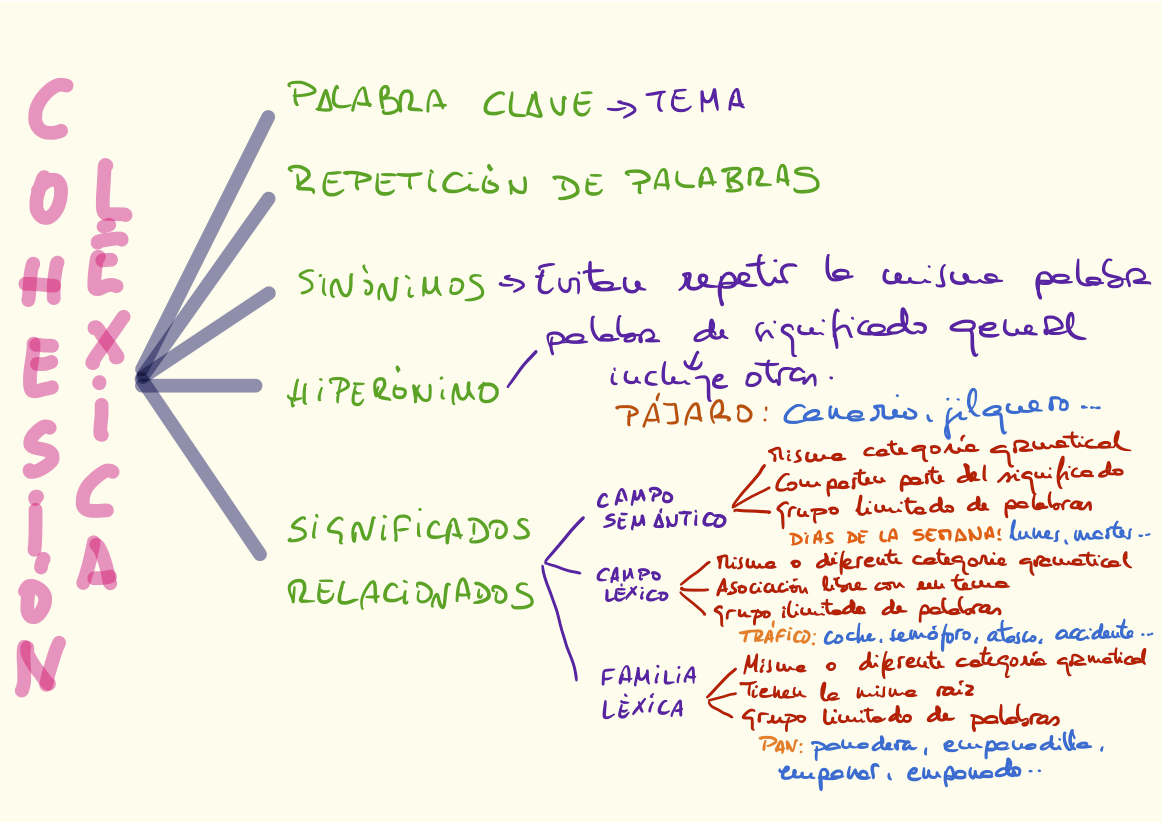 COHESIÓN
LÉXICA
PALABRA CLAVE → TEMA
REPETICIÓN DE PALABRAS
SINÓNIMOS → Evitan repetir la misma palabra
HIPERÓNIMO
palabra de significado general
↓
incluye otras.
PÁJARO: canario, jilguero...
SIGNIFICADOS
RELACIONADOS
CAMPO
SEMÁNTICO
Misma categoría gramatical
Comparten parte del significado
Grupo limitado de palabras
DÍAS DE LA SEMANA: lunes, martes...
CAMPO
LÉXICO
Misma o diferente categoría gramatical
Asociación libre con un tema
Grupo ilimitado de palabras
TRÁFICO: coche, semáforo, atasco, accidente...
FAMILIA
LÉXICA
Misma o diferente categoría gramatical
Tienen la misma raíz
Grupo limitado de palabras
PAN: panadera, empanadilla,
empanar, empanado...